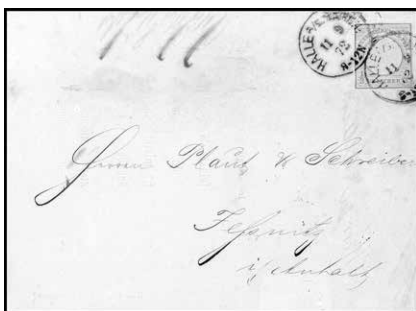 HALLE
11 9
72
8-12N.
HALLE
11
Herrn Plaut & Schreiber
Jeßnitz
i/Anhalt